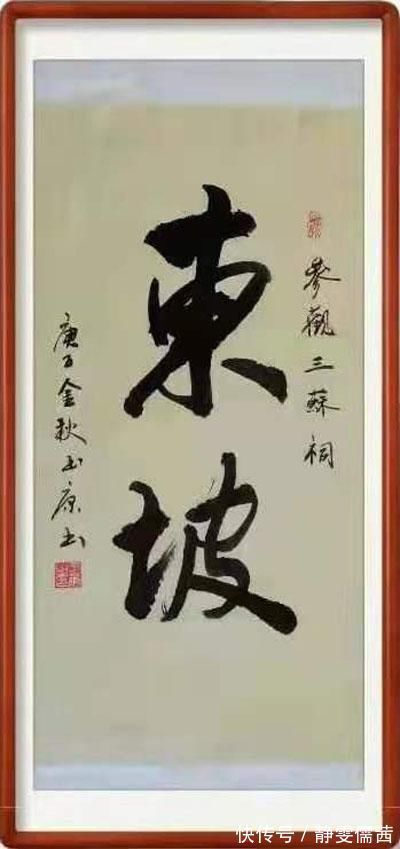 參觀三蘇祠
東坡
庚子金秋玉康书
快传号/静雯儒茜